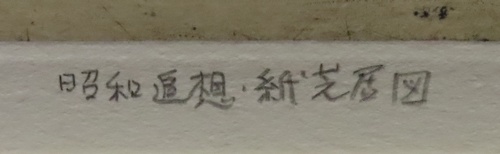 昭和追想・紙芝居図